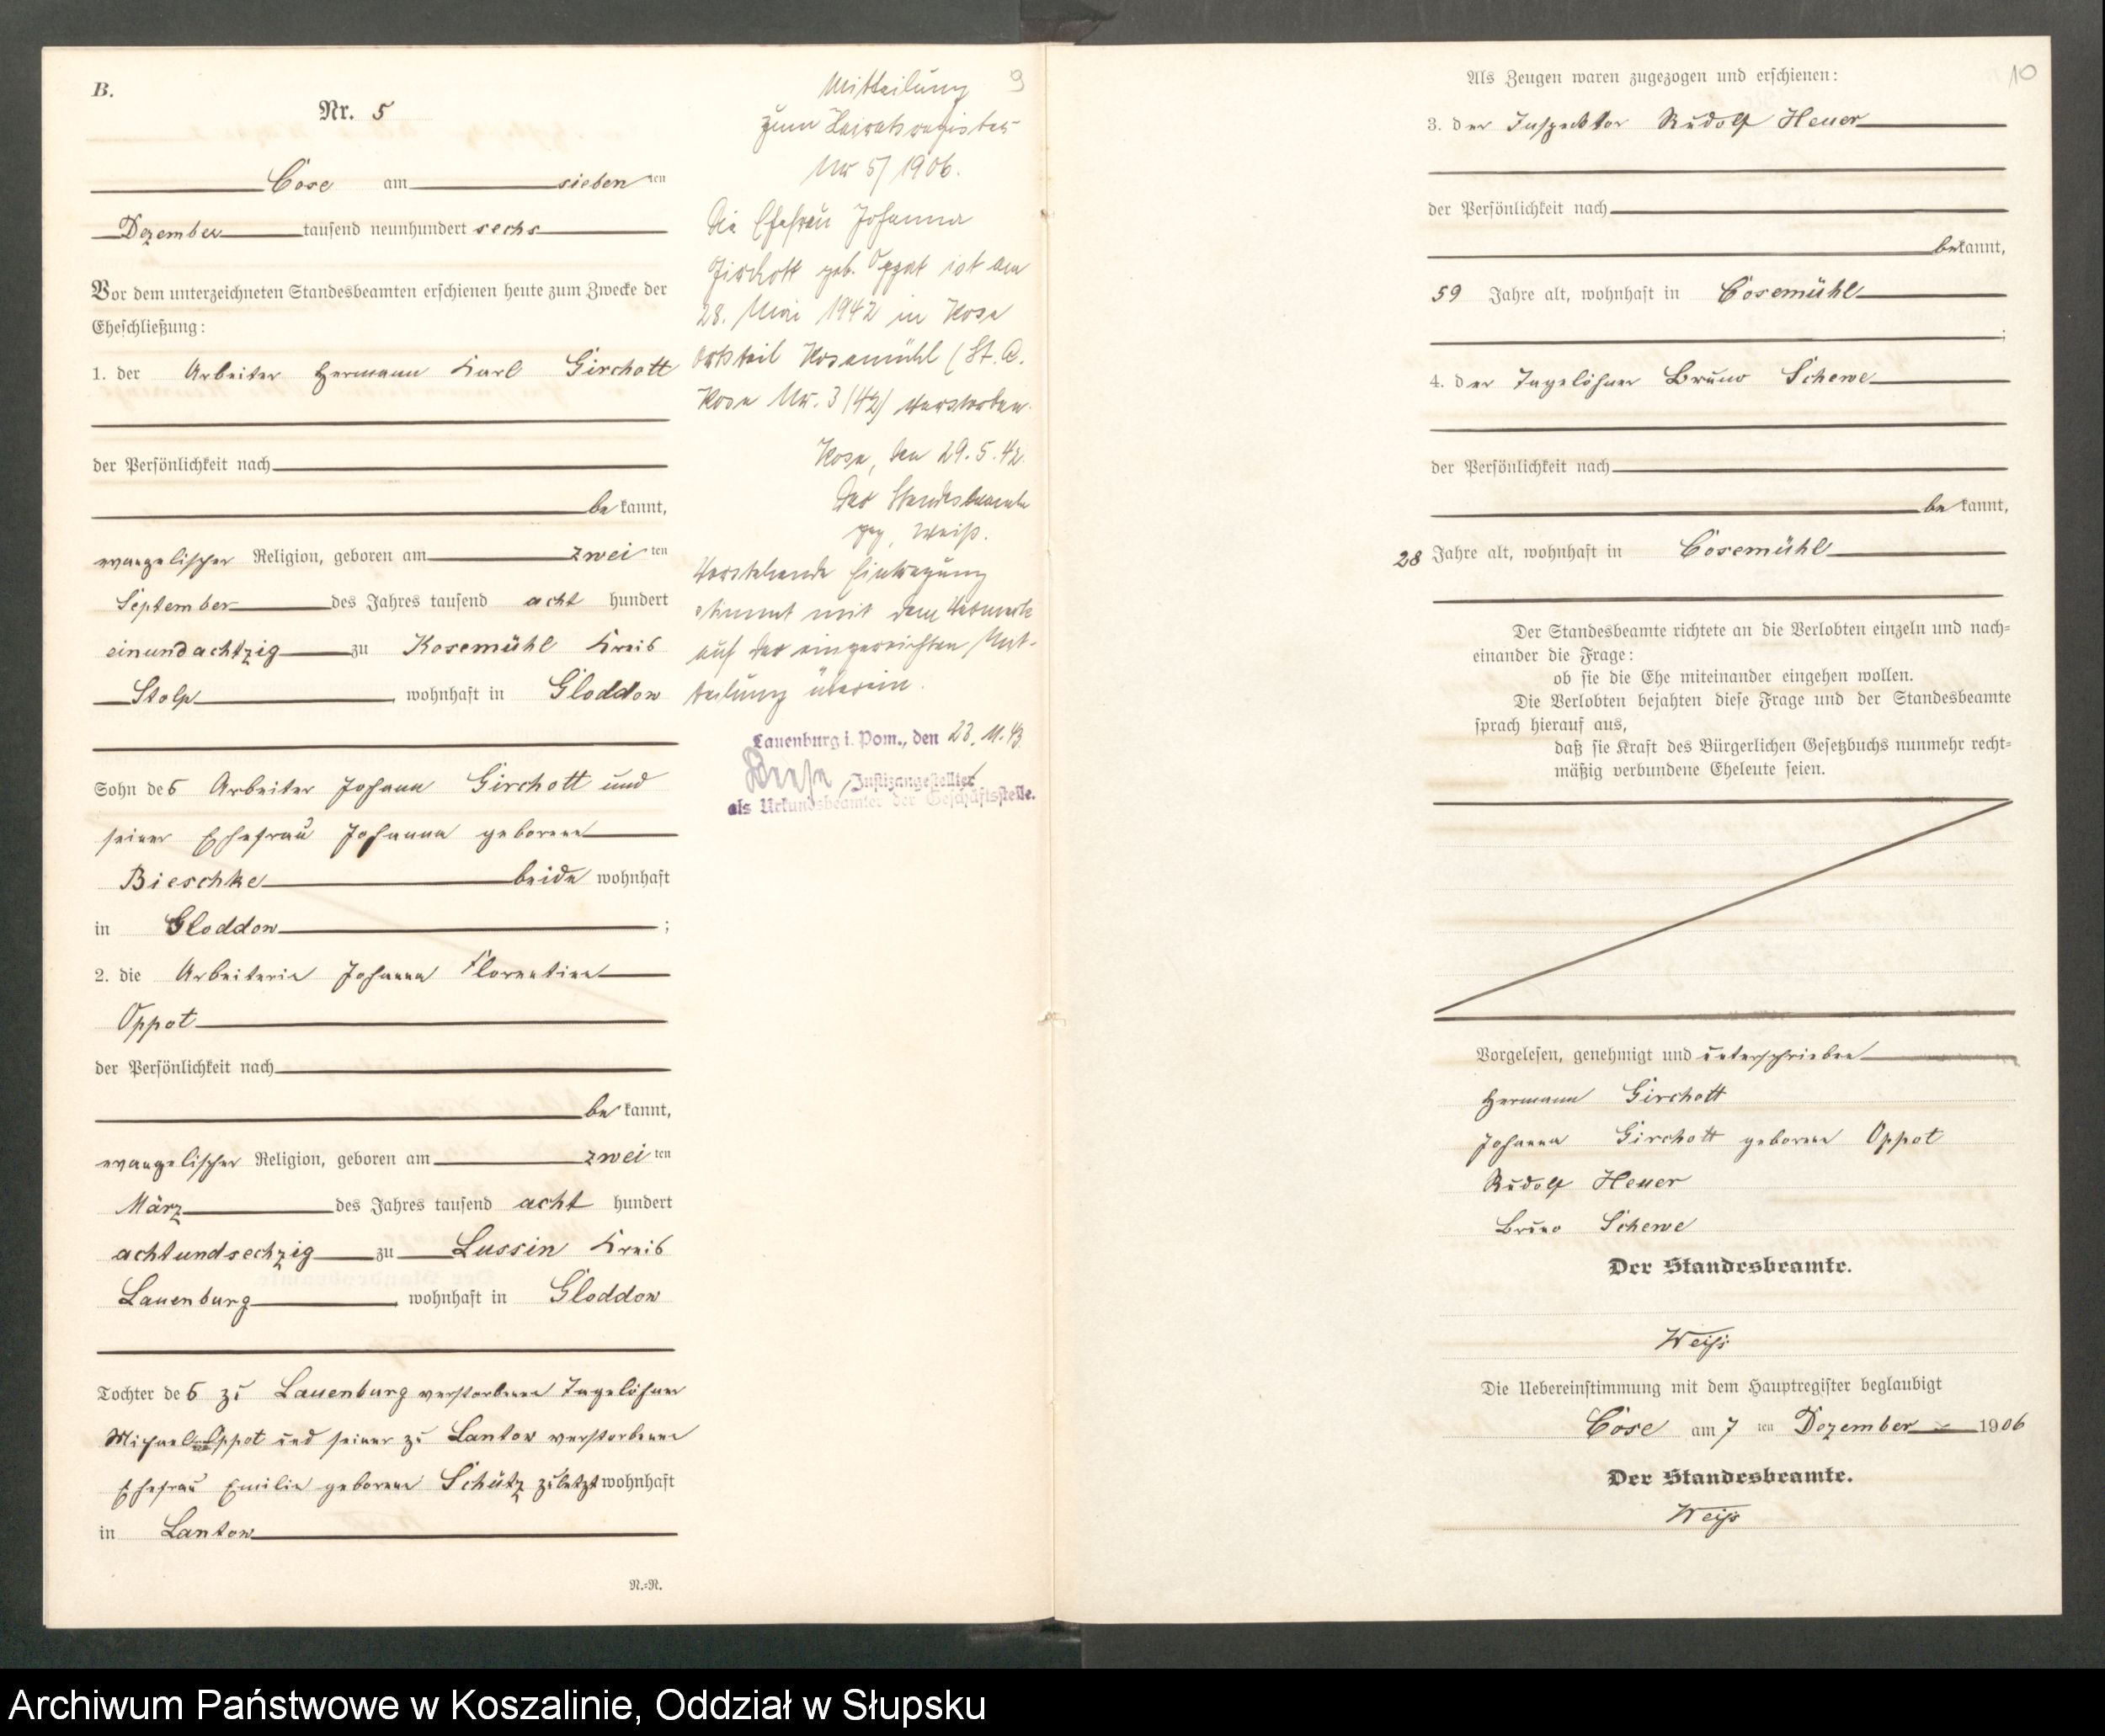 B.
Nr. 5
Cose am sieben ten
Dezember tausend neunhundert sechs
Vor dem unterzeichneten Standesbeamten erschienen heute zum Zwecke der
Eheschließung:
1. der Arbeiter Hermann Karl Girchott
der Persönlichkeit nach
be kannt,
evangelischer Religion, geboren am zwei ten
September des Jahres tausend acht hundert
einundachtzig zu Kosemühl Kreis
Stolp, wohnhaft in Gloddow
Sohn des Arbeiter Johann Girchott und
seiner Ehefrau Johanna geborene
Bieschke beide wohnhaft
in Gloddow ;
2. die Arbeiterin Johanna Florentine
Oppot
der Persönlichkeit nach
be kannt,
evangelischer Religion, geboren am zwei ten
März des Jahres tausend acht hundert
achtundsechzig zu Lussin Kreis
Lauenburg, wohnhaft in Gloddow
Tochter des zu Lauenburg verstorbenen Tagelöhner
Michael Oppot und seiner zu Lantow verstorbenen
Ehefrau Emilie geborene Schütz zuletzt wohnhaft
in Lantow
N.=N.
9
Mitteilung
zum Heiratsregister
Nr 5/1906.
Die Ehefrau Johanna
Girchott geb. Oppot ist am
28. Mai 1942 in Kose
Ortsteil Kosemühl (St. A.
Kose Nr. 3/42) verstorben.
Kose, den 29.5.42.
Der Standesbeamte
gez. Weiß.
Vorstehende Eintragung
stimmt mit dem Vermerk
auf der eingereichten Mit-
teilung überein.
Lauenburg i. Pom., den 23.11.43
Justizangestellter
als Urkundsbeamter der Geschäftsstelle.
10
Als Zeugen waren zugezogen und erschienen:
3. der Inspektor Rudolf Heuer
der Persönlichkeit nach
bekannt,
59 Jahre alt, wohnhaft in Cosemühl
;
4. der Tagelöhner Bruno Schewe
der Persönlichkeit nach
be kannt,
28 Jahre alt, wohnhaft in Cosemühl
Der Standesbeamte richtete an die Verlobten einzeln und nach=
einander die Frage:
ob sie die Ehe miteinander eingehen wollen.
Die Verlobten bejahten diese Frage und der Standesbeamte
sprach hierauf aus,
daß sie kraft des Bürgerlichen Gesetzbuchs nunmehr recht=
mäßig verbundene Eheleute seien.
Vorgelesen, genehmigt und unterschrieben
Hermann Girchott
Johanna Girchott geborene Oppot
Rudolf Heuer
Bruno Schewe
Der Standesbeamte.
Weiß
Die Uebereinstimmung mit dem Hauptregister beglaubigt
Cose am 7 ten Dezember 1906
Der Standesbeamte.
Weiß
Archiwum Państwowe w Koszalinie, Oddział w Słupsku